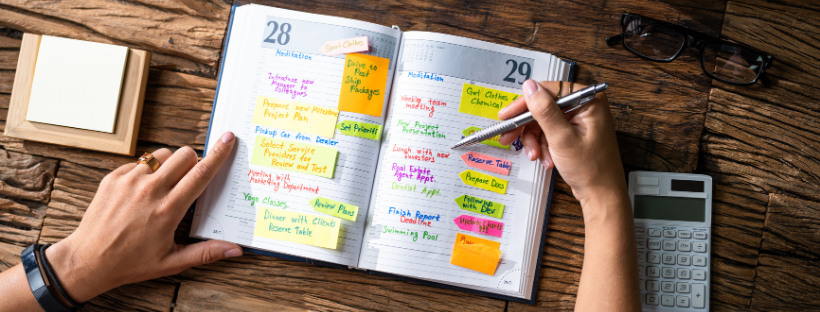 28
Sport Clothes
Meditation
Drive to
Post
Ship
Packages
Introduce new
Manager to
colleagues
Prepare new Milestone
Project Plan
Set Priorities
Pickup Car from Dealer
Select Service
Providers for
Review and Test
Meeting with
Marketing Department
Yoga Classes
Review Plans
Dinner with Clients
Reserve Table
29
Meditation
Get Clothes
Chemical
Weekly team
meeting
New Project
Presentation
Lunch with new
investors
Reserve Table
Real Estate
Agent Appt.
Prepare Docs
Dentist Appt.
Followup
with Dev
Finish Report
Deadline
Swimming Pool